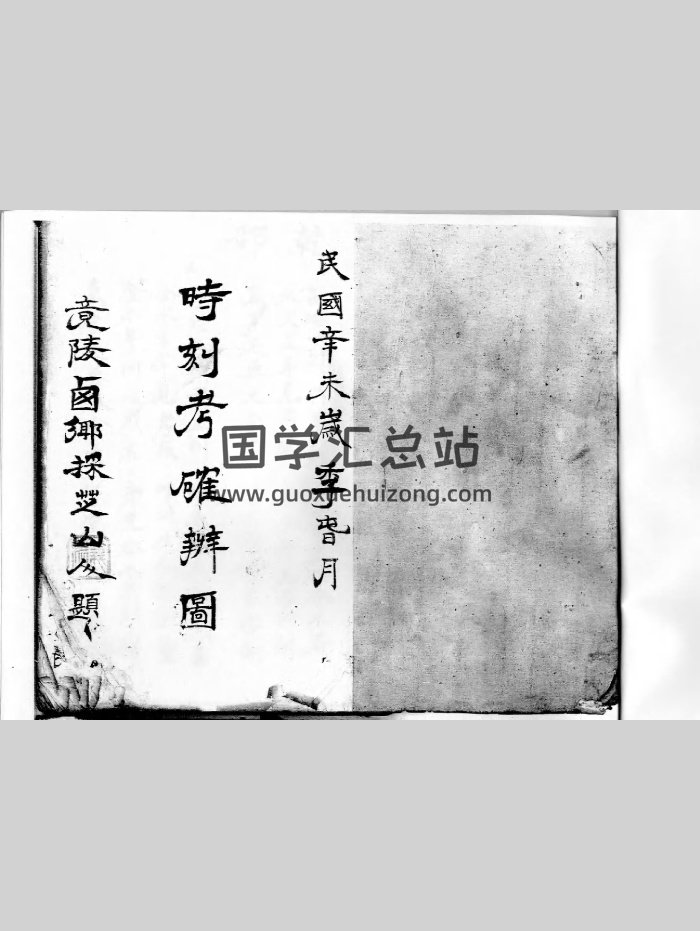 民國辛未歲季春月
時刻考確辦圖
竟陵鹵鄉採芝山人題
国学汇总站
www.guoxuehuizong.com